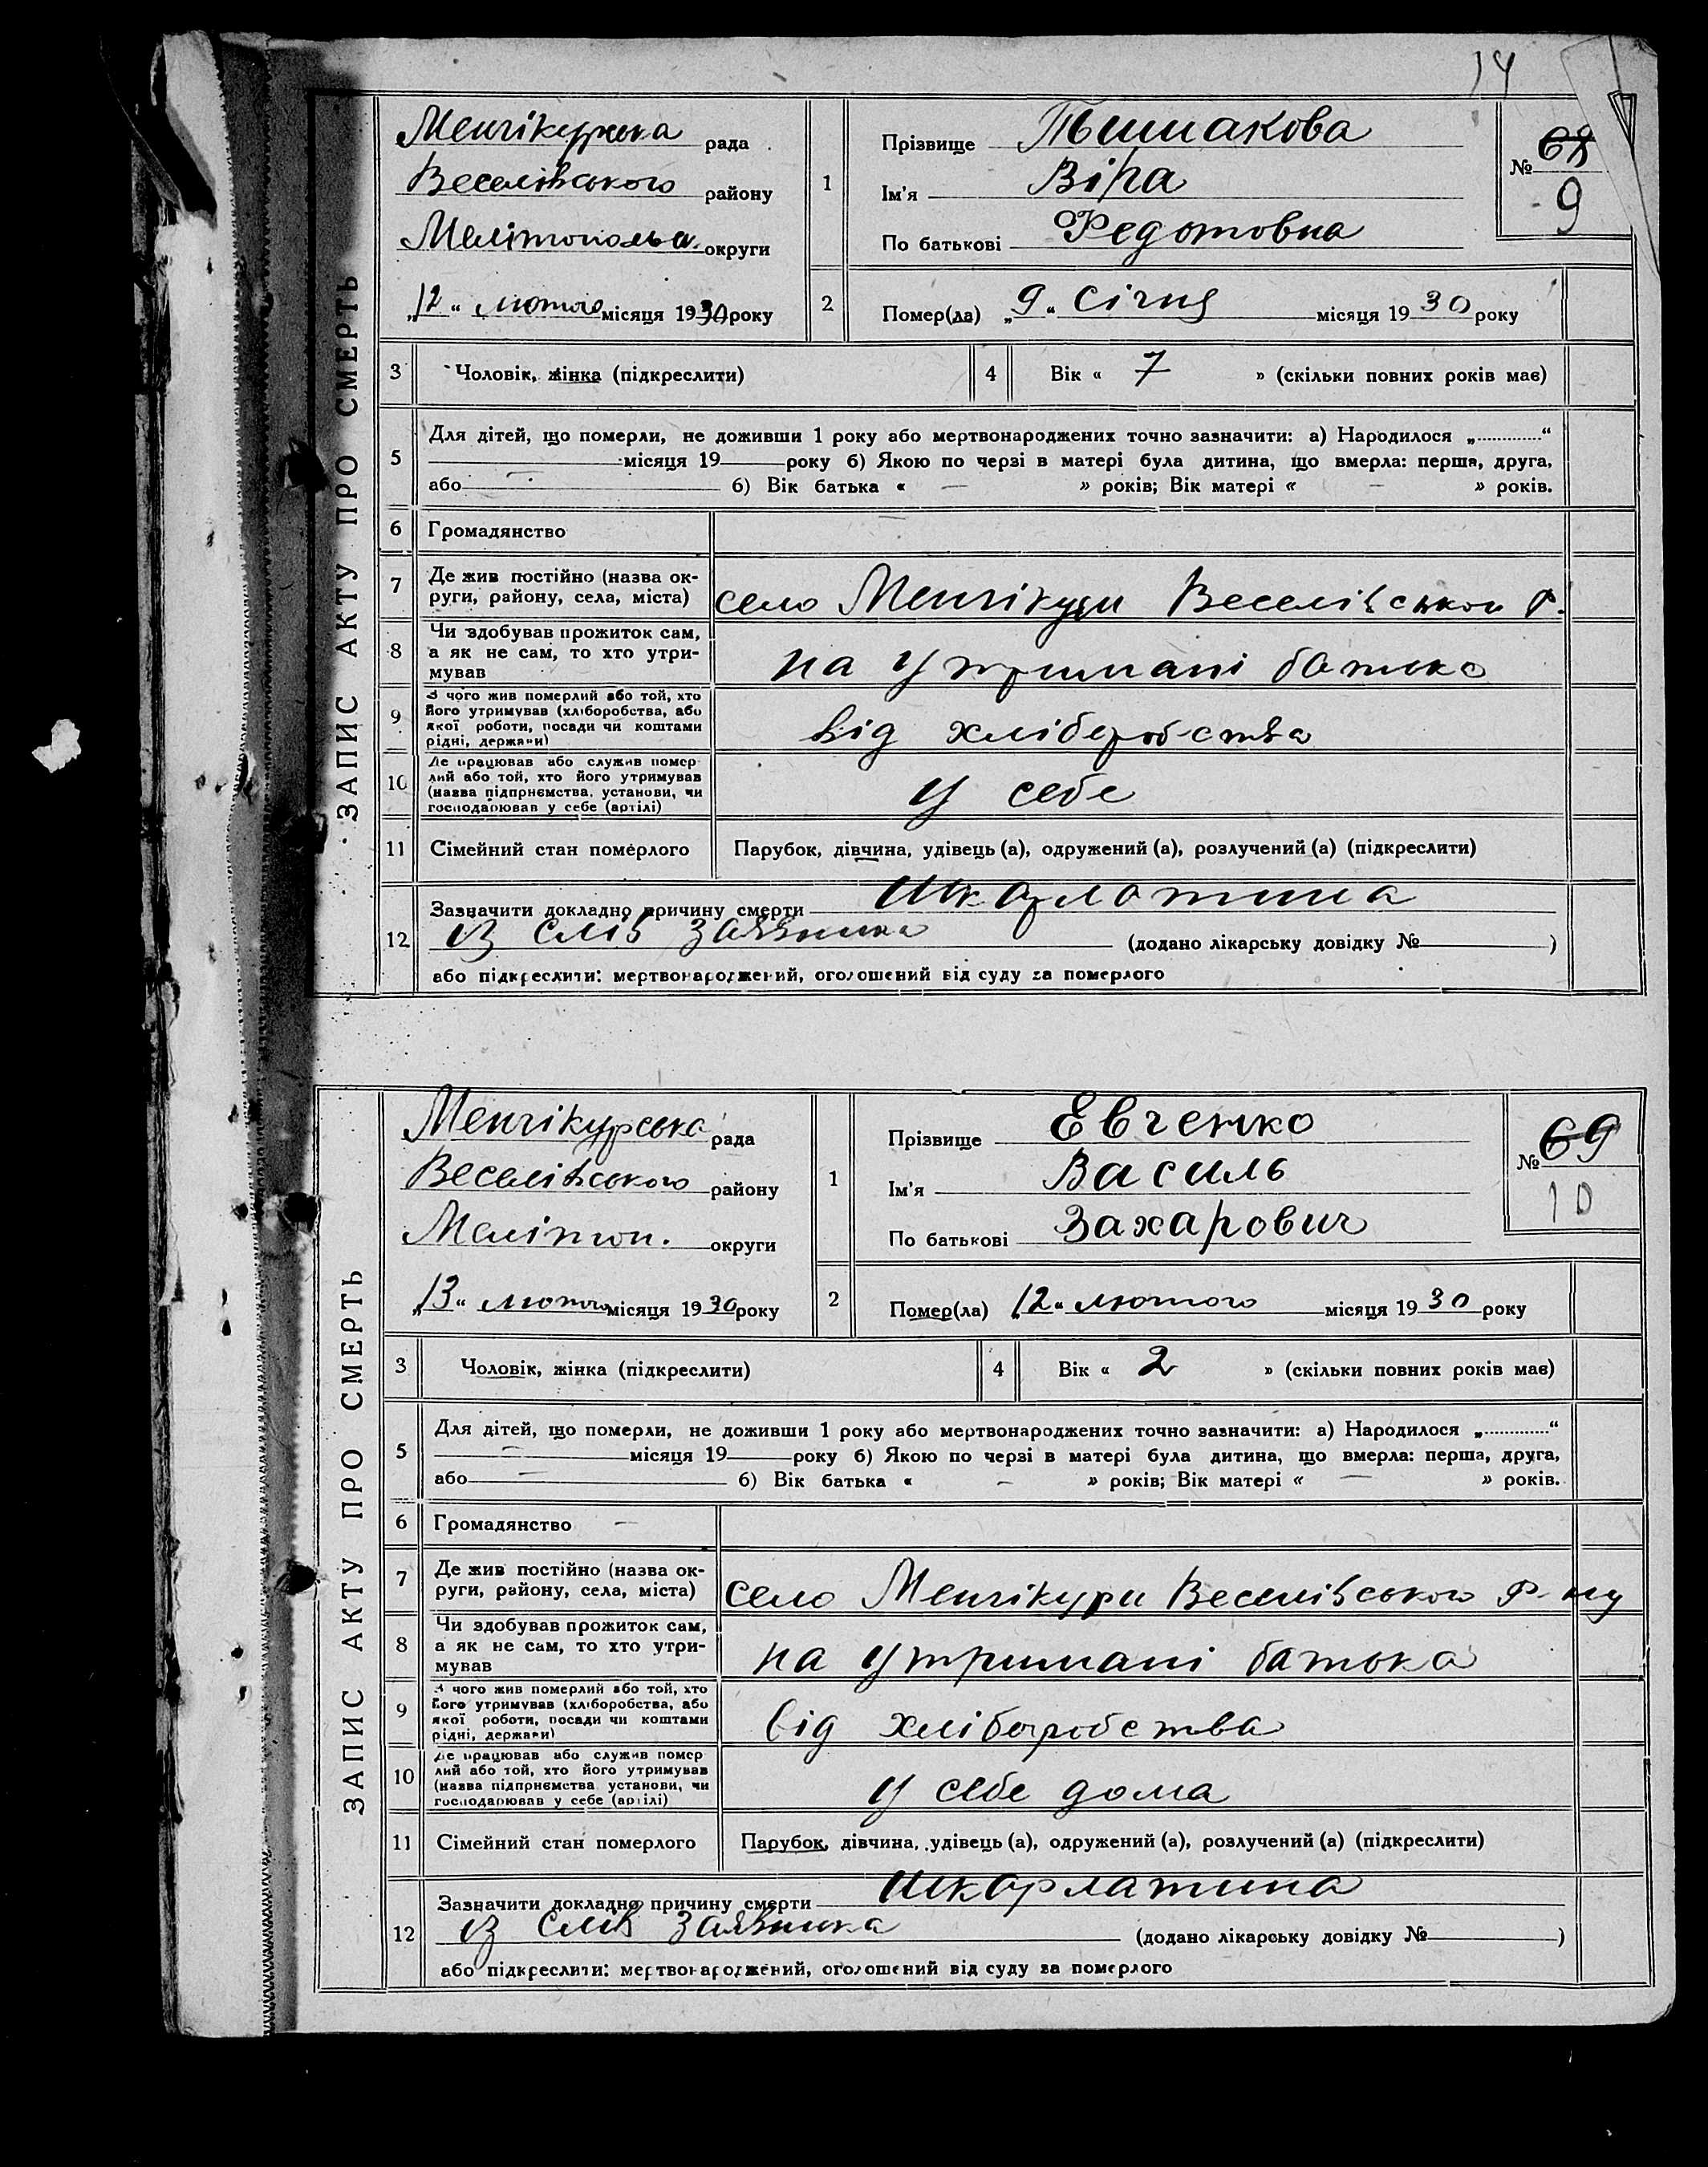 14
ЗАПИС АКТУ ПРО СМЕРТЬ
Менчікурська рада
Веселівського району
округи
„12“ лютого місяця 1930 року
1
Прізвище
Ім'я Віра
По батькові Федотовна
№ 68
9
2
Помер(ла) „9“ Січня місяця 1930 року
3 Чоловік, жінка (підкреслити)
4 Вік « 7 » (скільки повних років має)
5
Для дітей, що померли, не доживши 1 року або мертвонароджених точно зазначити: а) Народилося „............“
місяця 19 року б) Якою по черзі в матері була дитина, що вмерла: перша, друга,
або – б) Вік батька « – » років; Вік матері « – » років.
6 Громадянство
7
Де жив постійно (назва ок-
руги, району, села, міста) село Менчікури Веселівськои р.
8
Чи здобував прожиток сам,
а як не сам, то хто утри-
мував на утримані батька
9
З чого жив померлий або той, хто
його утримував (хліборобства, або
якої роботи, посади чи коштами
рідні, держави) від хліборобства
10
Де працював або служив помер
лий або той, хто його утримував
(назва підприємства, установи, чи
господарював у себе (артілі) у себе
11 Сімейний стан померлого Парубок, дівчина, удівець (а), одружений (а), розлучений (а) (підкреслити)
12
Зазначити докладно причину смерти Шкарлатина
із слів заявника (додано лікарську довідку № )
або підкреслити: мертвонароджений, оголошений від суду за померлого
ЗАПИС АКТУ ПРО СМЕРТЬ
Менчікурська рада
Веселівського району
Мелітоп. округи
„13“ лютого місяця 1930 року
1
Прізвище Евченко
Ім'я Василь
По батькові Захарович
№ 69
10
2
Помер(ла) „12“ лютого місяця 1930 року
3 Чоловік, жінка (підкреслити)
4 Вік « 2 » (скільки повних років має)
5
Для дітей, що померли, не доживши 1 року або мертвонароджених точно зазначити: а) Народилося „............“
– місяця 19 року б) Якою по черзі в матері була дитина, що вмерла: перша, друга,
або – б) Вік батька « – » років; Вік матері « – » років.
6 Громадянство –
7
Де жив постійно (назва ок-
руги, району, села, міста) село Менчікури Веселівського р-ну
8
Чи здобував прожиток сам,
а як не сам, то хто утри-
мував на утримані батька
9
З чого жив померлий або той, хто
його утримував (хліборобства, або
якої роботи, посади чи коштами
рідні, держави) від хліборобства
10
Де працював або служив помер
лий або той, хто його утримував
(назва підприємства, установи, чи
господарював у себе (артілі) у себе дома
11 Сімейний стан померлого Парубок, дівчина, удівець (а), одружений (а), розлучений (а) (підкреслити)
12
Зазначити докладно причину смерти Шкарлатина
із слів заявника (додано лікарську довідку № )
або підкреслити: мертвонароджений, оголошений від суду за померлого